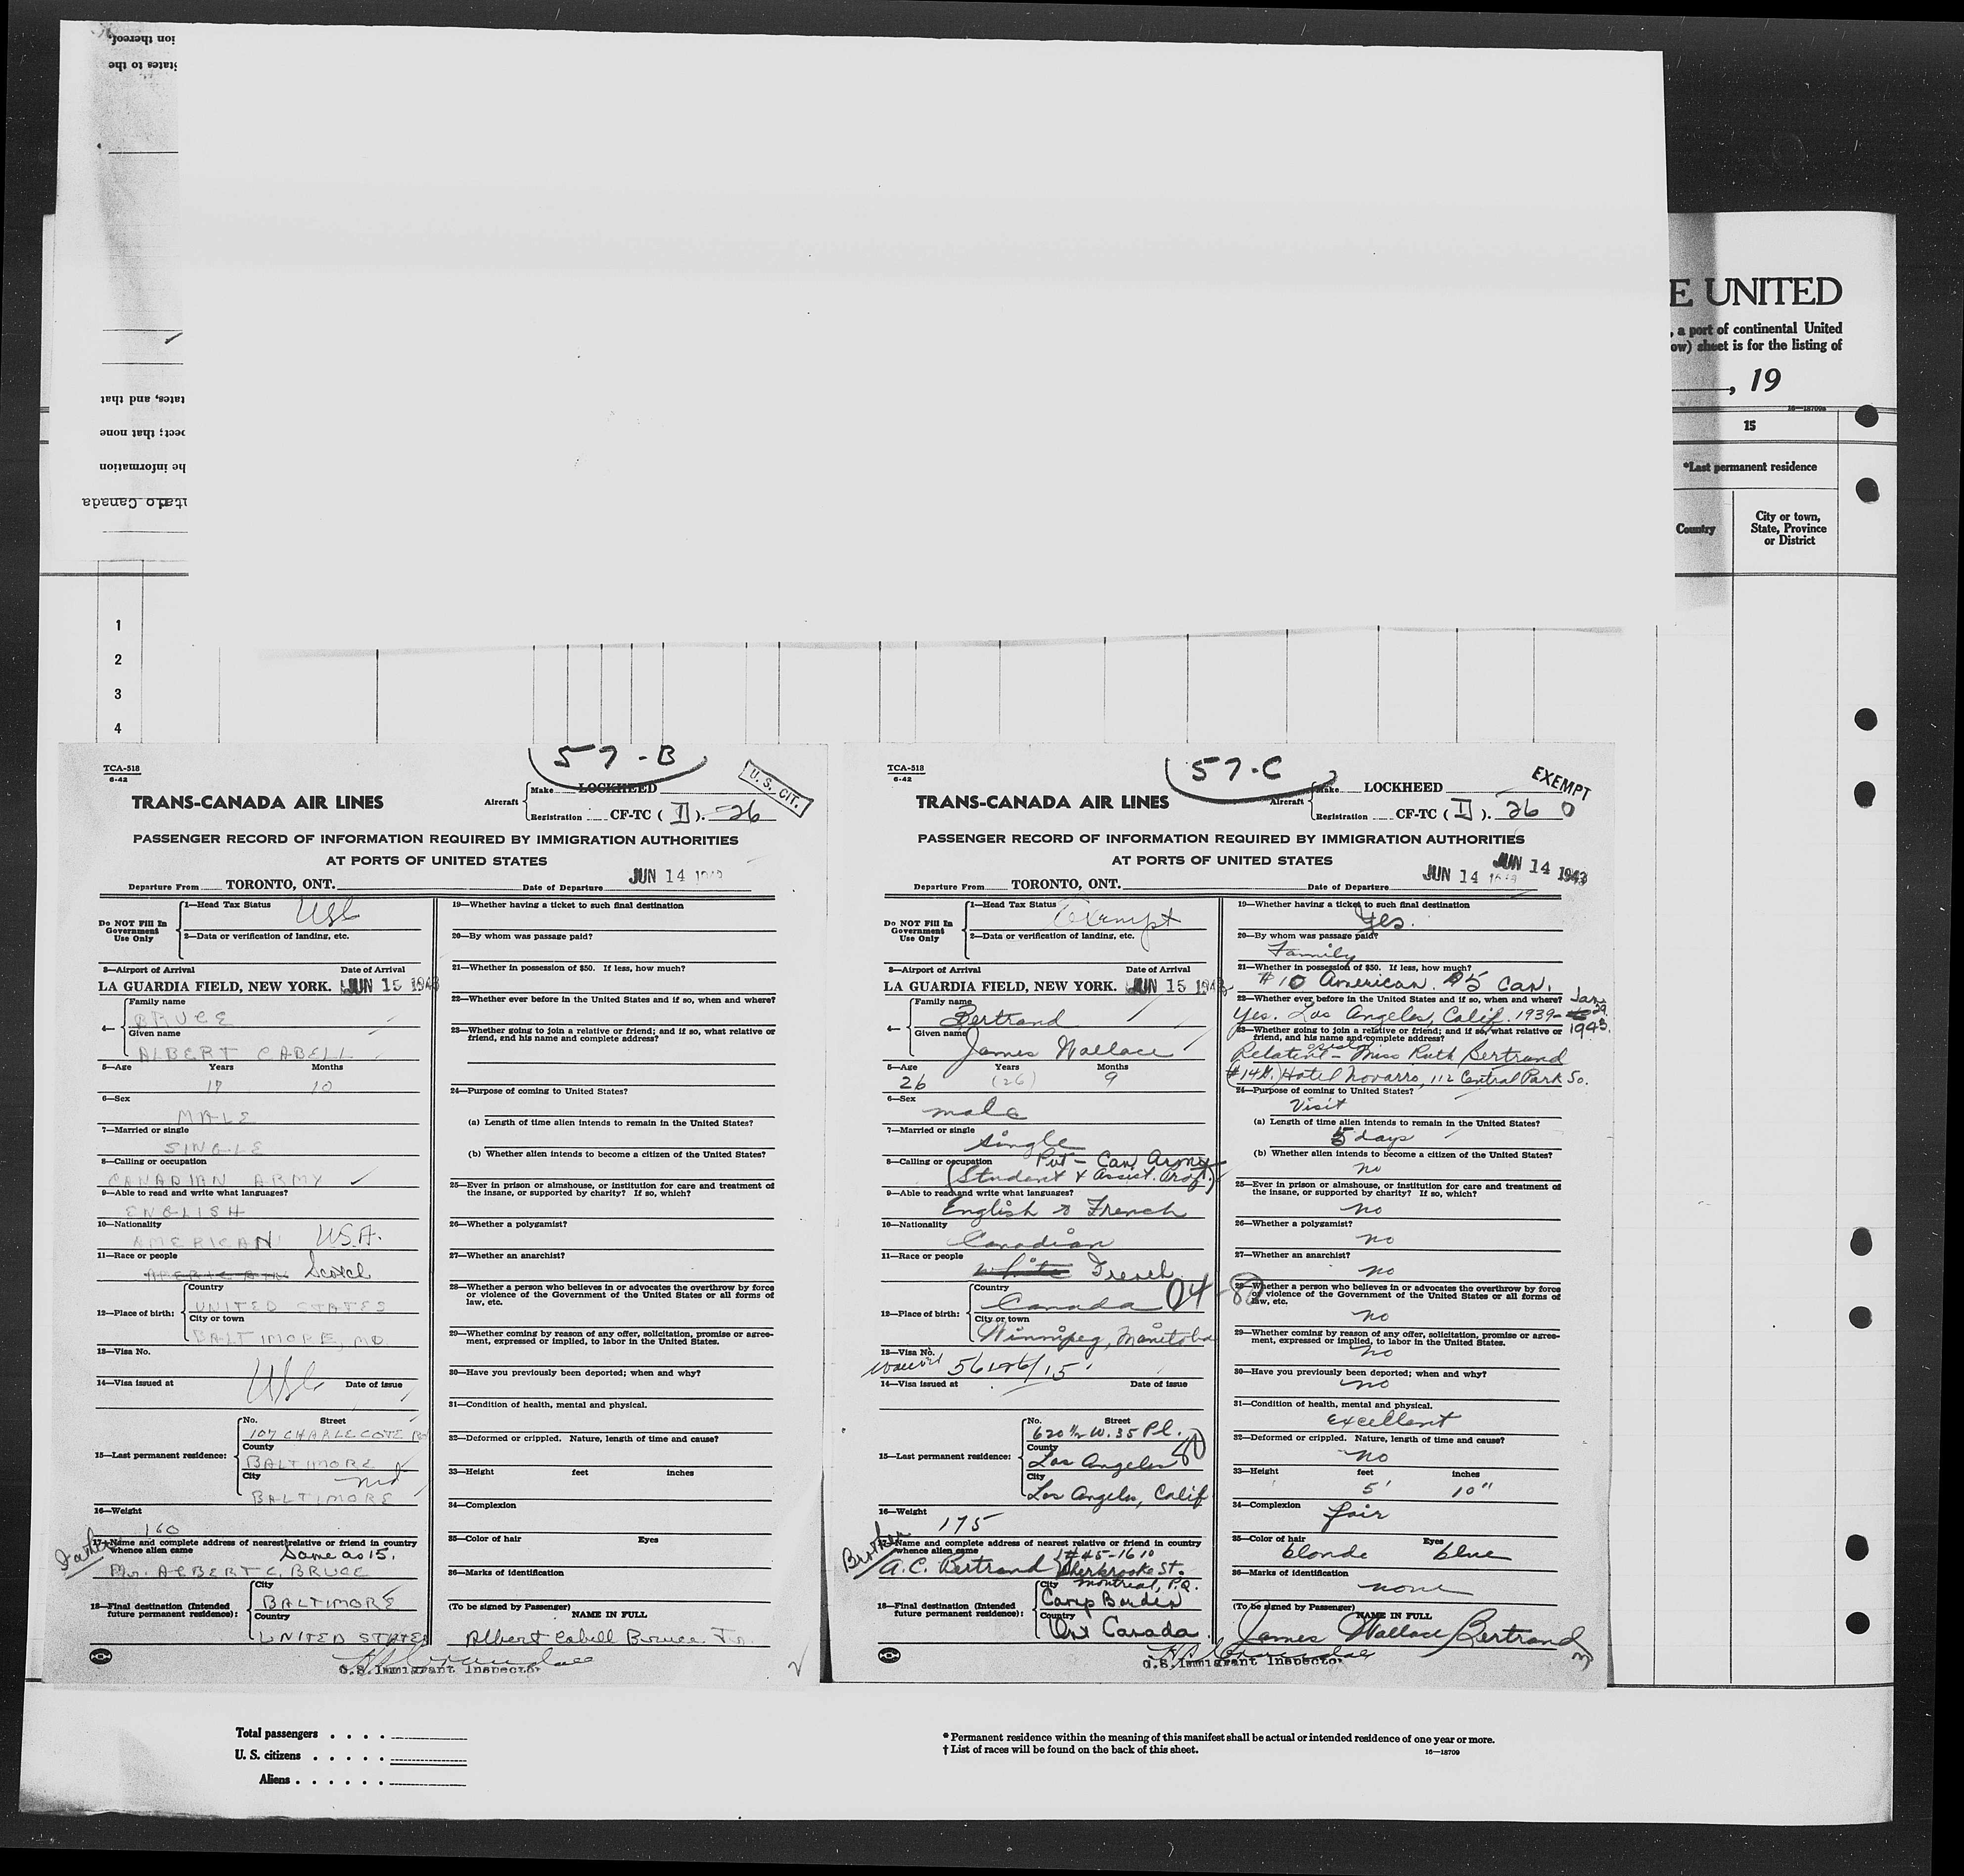 ion thereof.
States to the
tates, and that
pect; that none
he information
Canada
E UNITED
, a port of continental United
ow) sheet is for the listing of
, 19
16—18709a
15
*Last permanent residence
Country
City or town,
State, Province
or District
1
2
3
4
57-B
TCA-518
6-42
TRANS-CANADA AIR LINES
Aircraft
Make LOCKHEED
Registration CF-TC (II). -26
U. S. CIT.
PASSENGER RECORD OF INFORMATION REQUIRED BY IMMIGRATION AUTHORITIES
AT PORTS OF UNITED STATES
Departure From TORONTO, ONT.
Date of Departure JUN 14
Do NOT Fill In
Government
Use Only
1—Head Tax Status USC
2—Data or verification of landing, etc.
3—Airport of Arrival Date of Arrival
LA GUARDIA FIELD, NEW YORK. JUN 15 1943
4—
Family name
BRUCE
Given name
ALBERT CABELL
5—Age Years Months
17 10
6—Sex
MALE
7—Married or single
SINGLE
8—Calling or occupation
CANADIAN ARMY
9—Able to read and write what languages?
ENGLISH
10—Nationality
AMERICAN U.S.A.
11—Race or people
AMERICAN Scotch
12—Place of birth:
Country
UNITED STATES
City or town
BALTIMORE, MD.
13—Visa No.
USC
14—Visa issued at Date of issue
15—Last permanent residence:
No. Street
107 CHARLECOTE
County
BALTIMORE
City Md
BALTIMORE
16—Weight
160
Father
17—Name and complete address of nearest relative or friend in country
whence alien came Same as 15.
Mr. ALBERT C. BRUCE
18—Final destination (Intended
future permanent residence):
City
BALTIMORE
Country
UNITED STATES
19—Whether having a ticket to such final destination
20—By whom was passage paid?
21—Whether in possession of $50. If less, how much?
22—Whether ever before in the United States and if so, when and where?
23—Whether going to join a relative or friend; and if so, what relative or
friend, and his name and complete address?
24—Purpose of coming to United States?
(a) Length of time alien intends to remain in the United States?
(b) Whether alien intends to become a citizen of the United States?
25—Ever in prison or almshouse, or institution for care and treatment of
the insane, or supported by charity? If so, which?
26—Whether a polygamist?
27—Whether an anarchist?
28—Whether a person who believes in or advocates the overthrow by force
or violence of the Government of the United States or all forms of
law, etc.
29—Whether coming by reason of any offer, solicitation, promise or agree-
ment, expressed or implied, to labor in the United States.
30—Have you previously been deported; when and why?
31—Condition of health, mental and physical.
32—Deformed or crippled. Nature, length of time and cause?
33—Height feet inches
34—Complexion
35—Color of hair Eyes
36—Marks of identification
(To be signed by Passenger)
NAME IN FULL
Albert Cabell Bruce Jr.
U.S. Immigrant Inspector
57-C
TCA-518
6-42
TRANS-CANADA AIR LINES
Aircraft
Make LOCKHEED
Registration CF-TC (II). 26 0
EXEMPT
PASSENGER RECORD OF INFORMATION REQUIRED BY IMMIGRATION AUTHORITIES
AT PORTS OF UNITED STATES
JUN 14 1943
Departure From TORONTO, ONT.
Date of Departure JUN 14
Do NOT Fill In
Government
Use Only
1—Head Tax Status Exempt
2—Data or verification of landing, etc.
3—Airport of Arrival Date of Arrival
LA GUARDIA FIELD, NEW YORK. JUN 15 1943
4—
Family name
Bertrand
Given name
James Wallace
5—Age Years Months
26 (26) 9
6—Sex
male
7—Married or single
single
8—Calling or occupation Pvt - Can. Army
(Student & Assist. Prof.)
9—Able to read and write what languages?
English & French
10—Nationality
Canadian
11—Race or people
white French
12—Place of birth:
Country
Canada 04-80
City or town
Winnipeg, Manitoba
13—Visa No.
14—Visa issued at Date of issue
15—Last permanent residence:
No. Street
620 1/2 W. 35 Pl.
County
Los Angeles 80
City
Los Angeles, Calif
16—Weight
175
Brother
17—Name and complete address of nearest relative or friend in country
whence alien came #45-1610
A.C. Bertrand Sherbrooke St.
Montreal, P.Q.
18—Final destination (Intended
future permanent residence):
City
Camp Borden
Country
Ont Canada.
19—Whether having a ticket to such final destination
Yes.
20—By whom was passage paid?
Family
21—Whether in possession of $50. If less, how much?
$10 American. $5 Can.
22—Whether ever before in the United States and if so, when and where?
Yes. Los Angeles, Calif. 1939- Jan 29 1943.
23—Whether going to join a relative or friend; and if so, what relative or
friend, and his name and complete address?
Relative - sister Miss Ruth Bertrand
Hotel Navarro, 112 Central Park So.
24—Purpose of coming to United States?
Visit
(a) Length of time alien intends to remain in the United States?
5 days
(b) Whether alien intends to become a citizen of the United States?
no
25—Ever in prison or almshouse, or institution for care and treatment of
the insane, or supported by charity? If so, which?
no
26—Whether a polygamist?
no
27—Whether an anarchist?
no
28—Whether a person who believes in or advocates the overthrow by force
or violence of the Government of the United States or all forms of
law, etc.
no
29—Whether coming by reason of any offer, solicitation, promise or agree-
ment, expressed or implied, to labor in the United States.
no
30—Have you previously been deported; when and why?
no
31—Condition of health, mental and physical.
excellent
32—Deformed or crippled. Nature, length of time and cause?
no
33—Height feet inches
5' 10"
34—Complexion
fair
35—Color of hair Eyes
blonde blue
36—Marks of identification
none
(To be signed by Passenger)
NAME IN FULL
James Wallace Bertrand
U.S. Immigrant Inspector
3
Total passengers . . . .
U. S. citizens . . . . .
Aliens . . . . . .
* Permanent residence within the meaning of this manifest shall be actual or intended residence of one year or more.
† List of races will be found on the back of this sheet.
16—18709